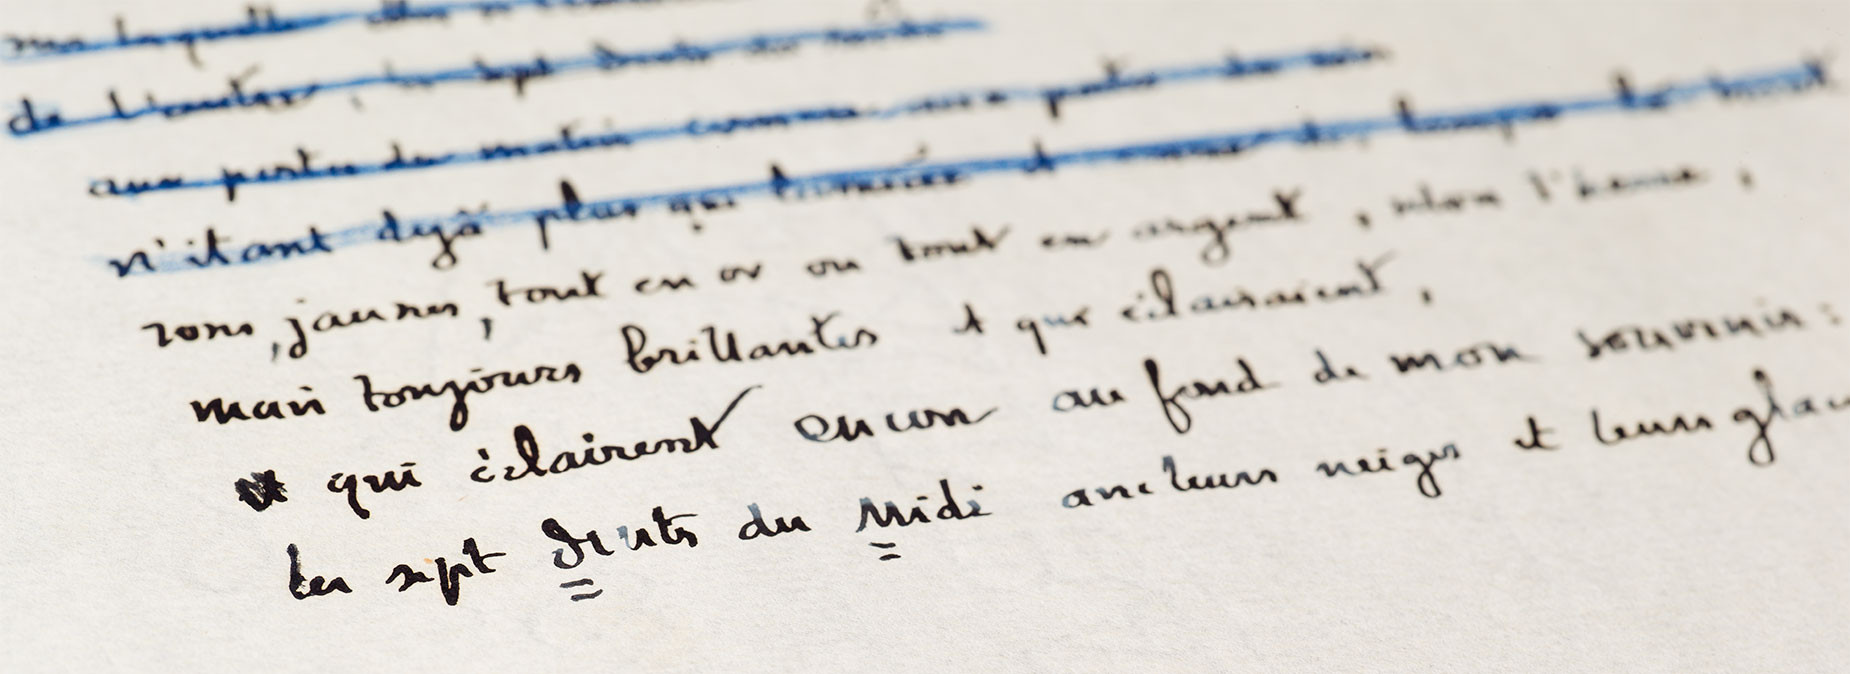 sur laquelle elles
de l'autre, les sept dents du midi
aux portes du matin comme aux portes du soir
n'étant déjà plus que lumière et
roses, jaunes, tout en or ou tout en argent, selon l'heure,
mais toujours brillantes et qui éclairaient,
et qui éclairent encore au fond de mon souvenir :
les sept Dents du Midi avec leurs neiges et leurs